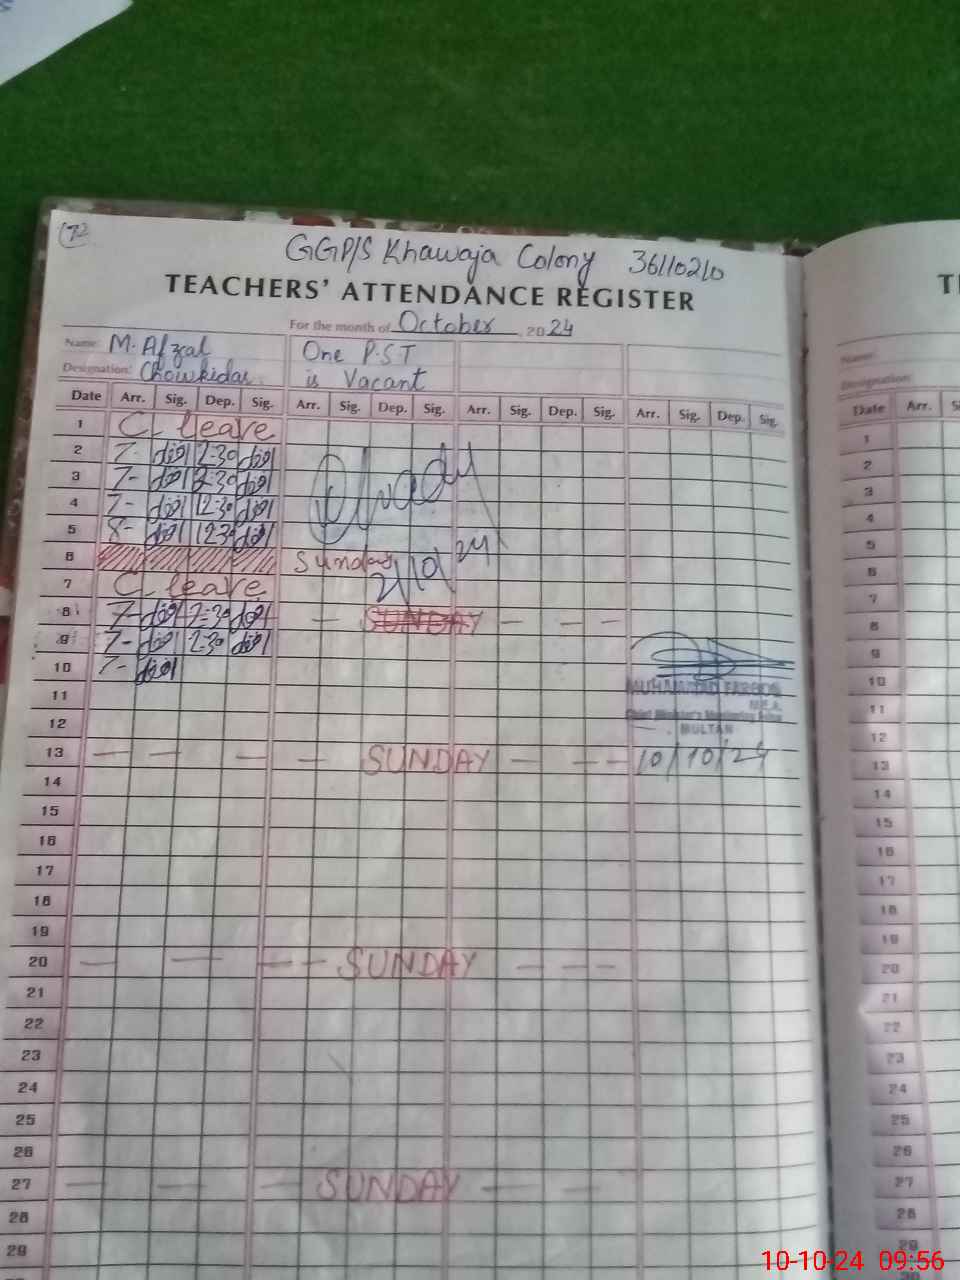 72
GGP/S Khawaja Colony 36110210
TEACHERS' ATTENDANCE REGISTER
For the month of October, 2024
Name: M. Afzal One P.S.T
Designation: Chowkidar is Vacant
Date Arr. Sig. Dep. Sig. Arr. Sig. Dep. Sig. Arr. Sig. Dep. Sig. Arr. Sig. Dep. Sig.
1 C. leave
2 7- 12-30
3 7- 12-30
4 7- 12-30
5 8- 12-30
6 Sunday
2/10/24
7 C. leave
8 7- 12-30 — SUNDAY — — —
9 7- 12-30
10 7-
MUHAMMAD FAROOQ
M.E.A.
MULTAN
11
12
13 — — — — SUNDAY — — — 10/10/24
14
15
16
17
18
19
20 — — — — SUNDAY — — —
21
22
23
24
25
26
27 — — — SUNDAY — —
28
29
Name:
Designation:
Date Arr.
1
2
3
4
5
6
7
8
9
10
11
12
13
14
15
16
17
18
19
20
21
22
23
24
25
26
27
28
29
10-10-24 09:56